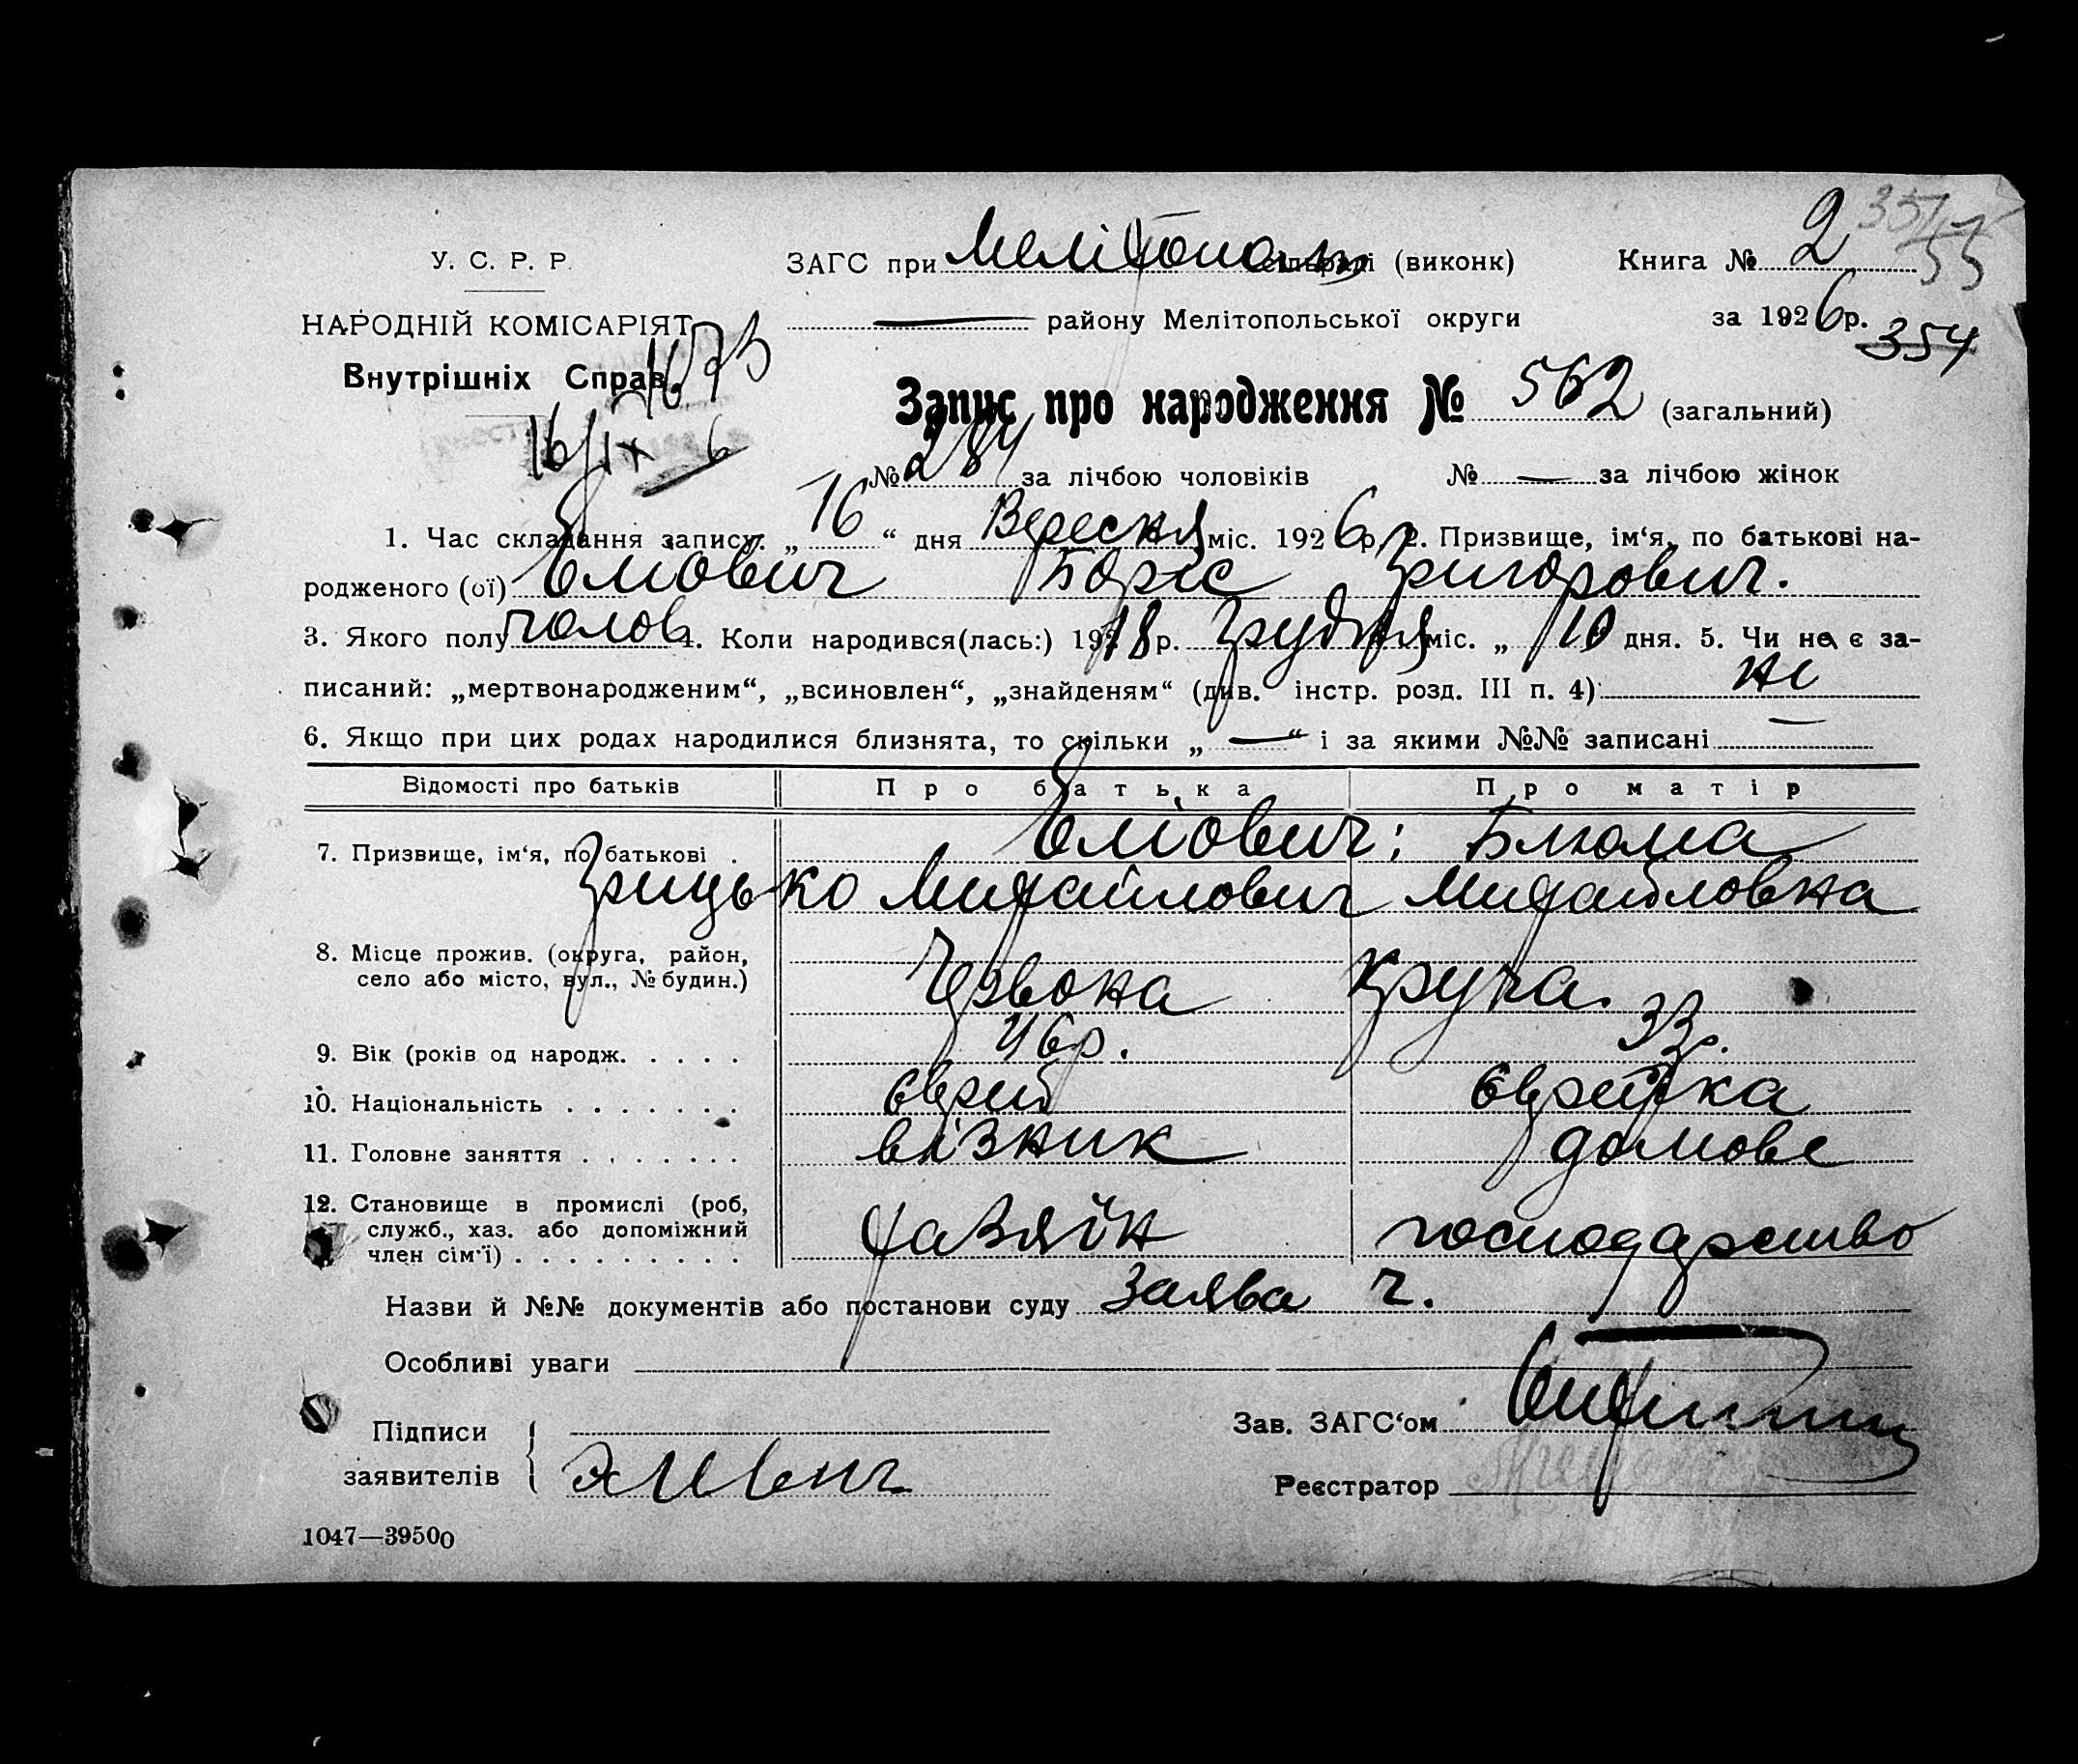 У. С. Р. Р. ЗАГС при Мелітополь сільраді (виконк) Книга № 2
НАРОДНІЙ КОМІСАРІЯТ — району Мелітопольської округи за 1926 р.
354
Внутрішніх Справ. 1673
Запис про народження № 562 (загальний)
16/IX 6
№ 284 за лічбою чоловіків № — за лічбою жінок
1. Час складання запису. „ 16 “ дня Вересня міс. 1926 р. 2. Призвище, ім‘я, по батькові на-
родженого (ої) Елиович Боріс Григорович.
3. Якого полу чолов 4. Коли народився(лась:) 1918 р. Грудня міс. „ 10 дня. 5. Чи не є за-
писаний: „мертвонародженим“, „всиновлен“, „знайденям“ (див. інстр. розд. III п. 4) не
6. Якщо при цих родах народилися близнята, то скільки „ — “ і за якими №№ записані —
Відомості про батьків Про батька Про матір
7. Призвище, ім‘я, по батькові . Елиович; Блюма
Грицько Михайлович Михайловна
8. Місце прожив. (округа, район,
село або місто, вул., № будин.) Червона круча.
9. Вік (років од народж. . . . . 46р. 33р.
10. Національність . . . . . . . єврей єврейка
11. Головне заняття . . . . . . . візник домове
12. Становище в промислі (роб,
служб., хаз. або допоміжний хазяїн господарство
член сім‘ї) . . . . . . . . .
Назви й №№ документів або постанови суду Заява ч.
Особливі уваги
Підписи Зав. ЗАГС‘ом
заявителів Реєстратор
1047—39500